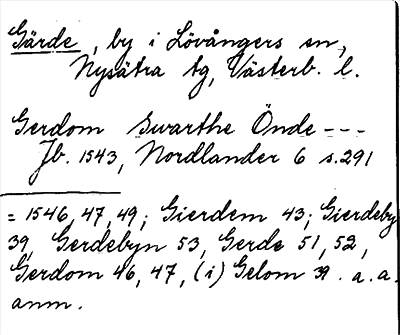 Gärde, by i Lövångers sn,
Nysätra tg, Västerb. l.
Gerdom Swarthe Önde ---
Jb. 1543, Nordlander 6 s. 291
= 1546, 47, 49; Gierdem 43; Gierdeby
39, Gerdebyn 53, Gerde 51, 52,
Gerdom 46, 47, (i) Gelom 39. a. a.
anm.